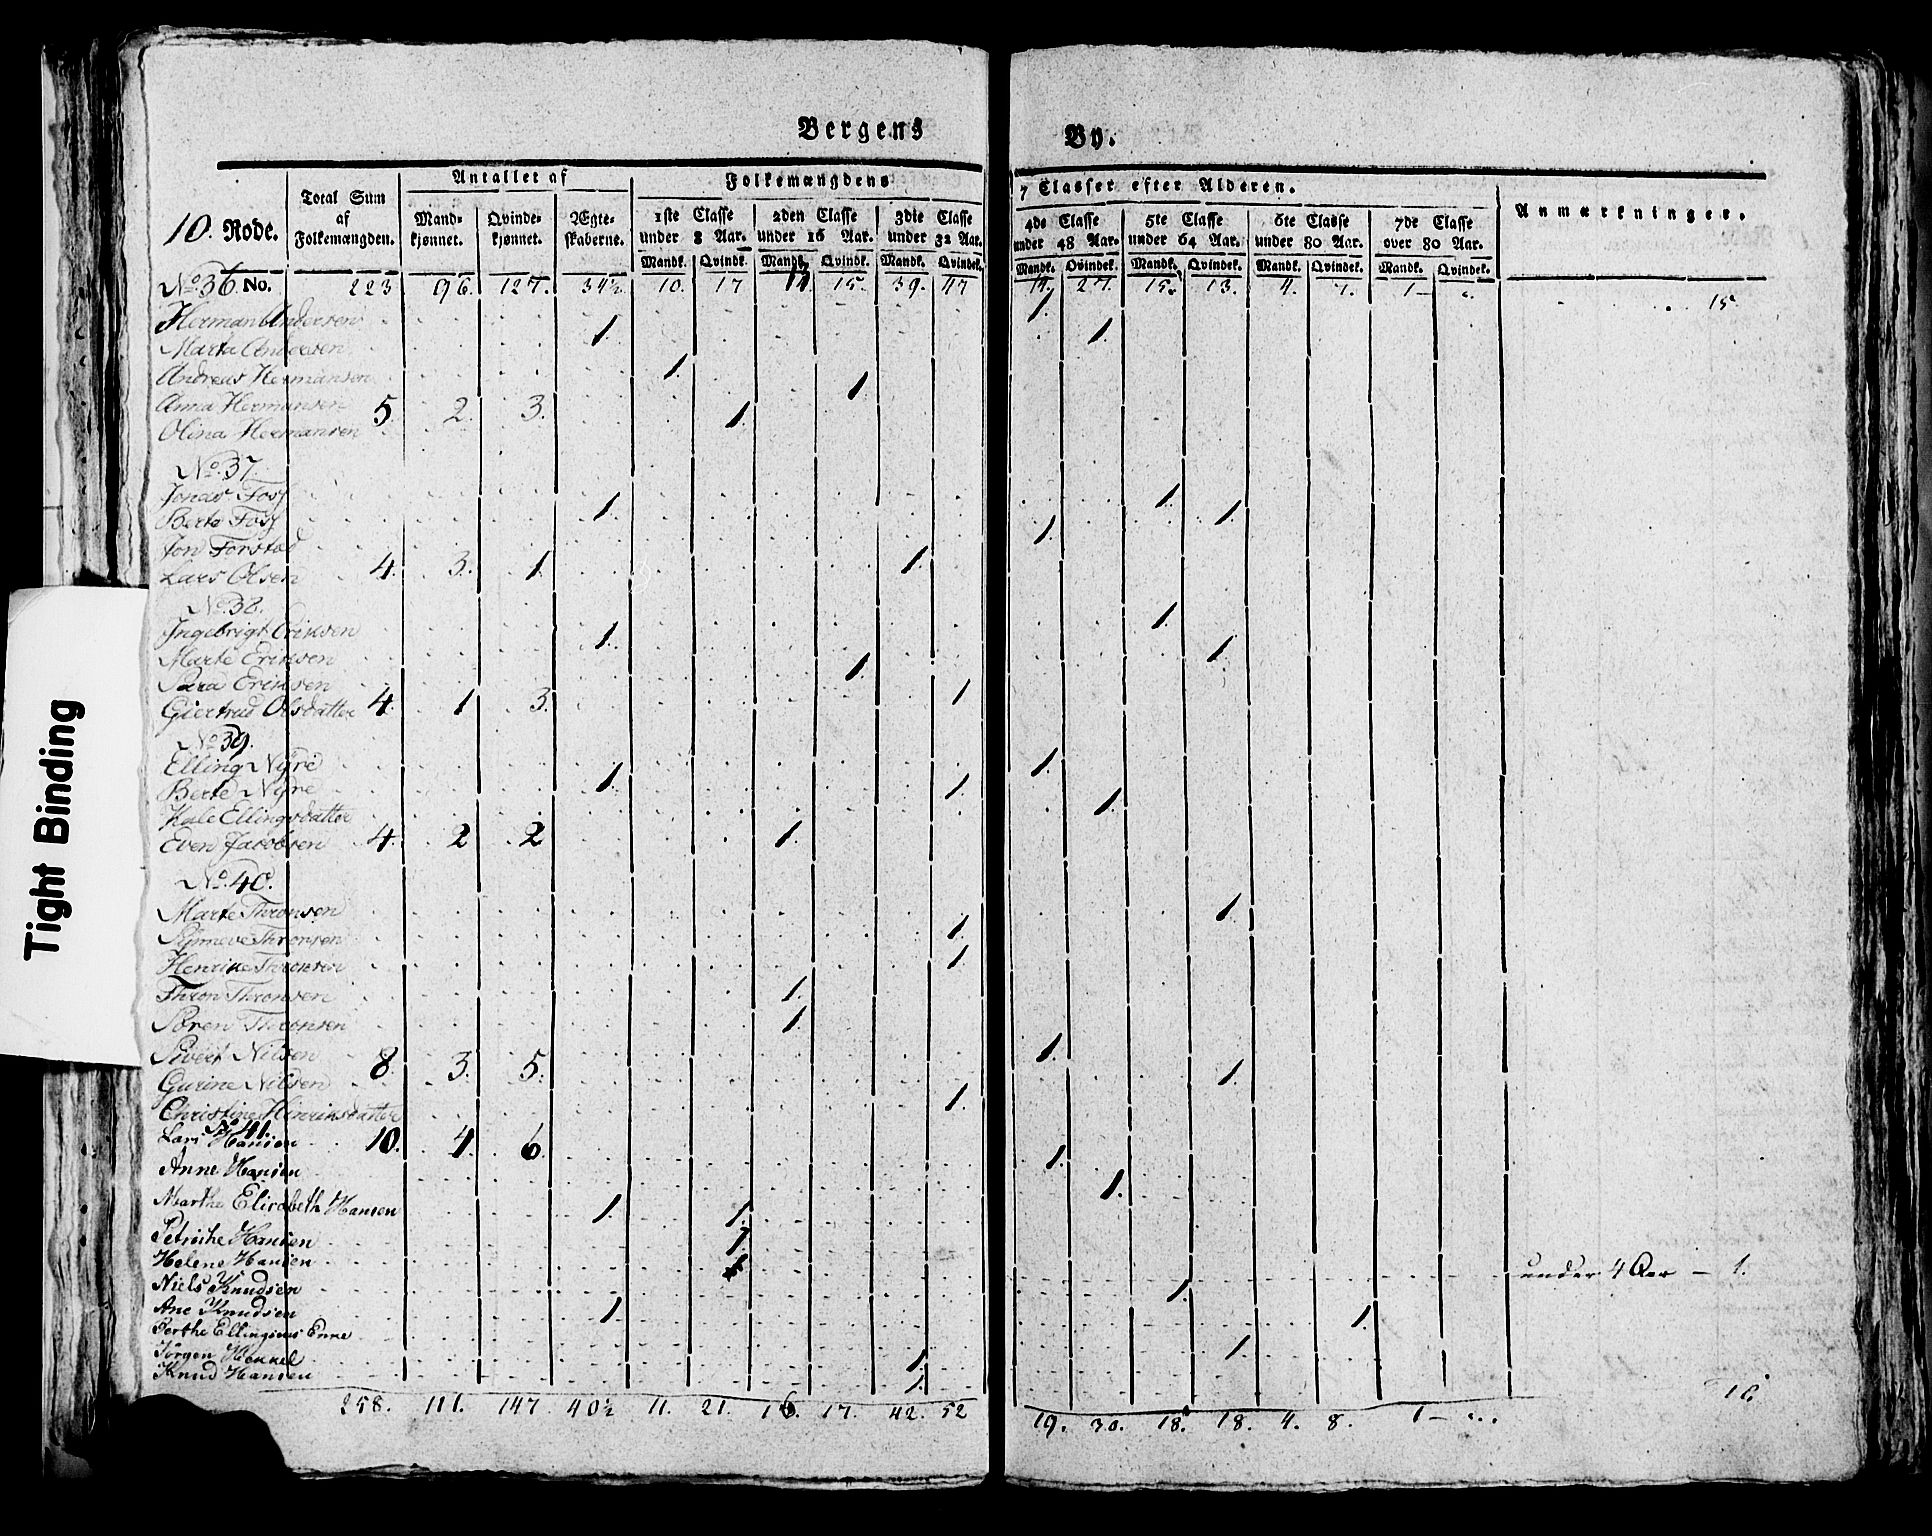 Bergens By.
10. Rode.
Total Sum af Folkemængden.
Antallet af
Mand-kjønnet. Qvinde-kjønnet. Ægte-skaberne.
Folkemængdens 7 Classer efter Alderen.
1ste Classe under 8 Aar. 2den Classe under 16 Aar. 3die Classe under 32 Aar. 4de Classe under 48 Aar. 5te Classe under 64 Aar. 6te Classe under 80 Aar. 7de Classe over 80 Aar.
Mandk. Qvindek. Mandk. Qvindek. Mandk. Qvindek. Mandk. Qvindek. Mandk. Qvindek. Mandk. Qvindek. Mandk. Qvindek.
Anmærkninger.
No. 36 No. 223 96. 127. 34½ 10. 17 15. 39. 47 14. 27. 15. 13. 4. 7. 1 - 15
Herman Andersen 1.
Marta Andersen 1. 1.
Andreas Hermansen 1.
Anna Hermansen 5. 2. 3. 1.
Olina Hermansen 1.
No. 37.
Jonas Foss 1.
Berte Foss 1. 1.
Jon Forstad 1.
Lars Olsen 4. 3. 1. 1.
No. 38.
Ingebrigt Eriksen 1.
Marte Eriksen 1. 1.
Sara Eriksen 1.
Giertrud Olsdatter 4. 1 3. 1
No. 39.
Elling Nyre 1.
Berte Nyre 1. 1.
Kale Ellingsdatter 1.
Even Jacobsen 4. 2 2 1.
No. 40.
Marte Thronsen 1.
Synneve Thronsen 1.
Henrike Thronsen 1.
Thron Thronsen 1.
Søren Thronsen 1.
Sivert Nilsen 8. 3. 5. 1.
Gurine Nilsen 1.
Christine Henriksdatter 1.
No. 41.
Lars Hansen 10. 4. 6. 1.
Anne Hansen 1.
Marthe Elisabeth Hansen 1. 1.
Petriche Hansen 1.
Helene Hansen 1 under 4 Aar — 1.
Niels Knudsen 1.
Ane Knudsen 1. 1.
Berthe Ellingsens Enke 1.
Jørgen Henkel 1.
Knud Hansen 1.
258. 111. 147. 40½ 11. 21. 16. 17. 42. 52 19. 30. 18. 18. 4. 8. 1 - 16
Tight Binding